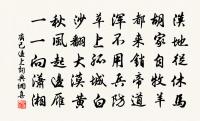 漢地從休馬
胡家自牧羊
都來銷帝道
渾不用兵防
草上孤城白
沙翻大漠黃
秋風起邊雁
一一向瀟湘
齊己邊上詞典網書